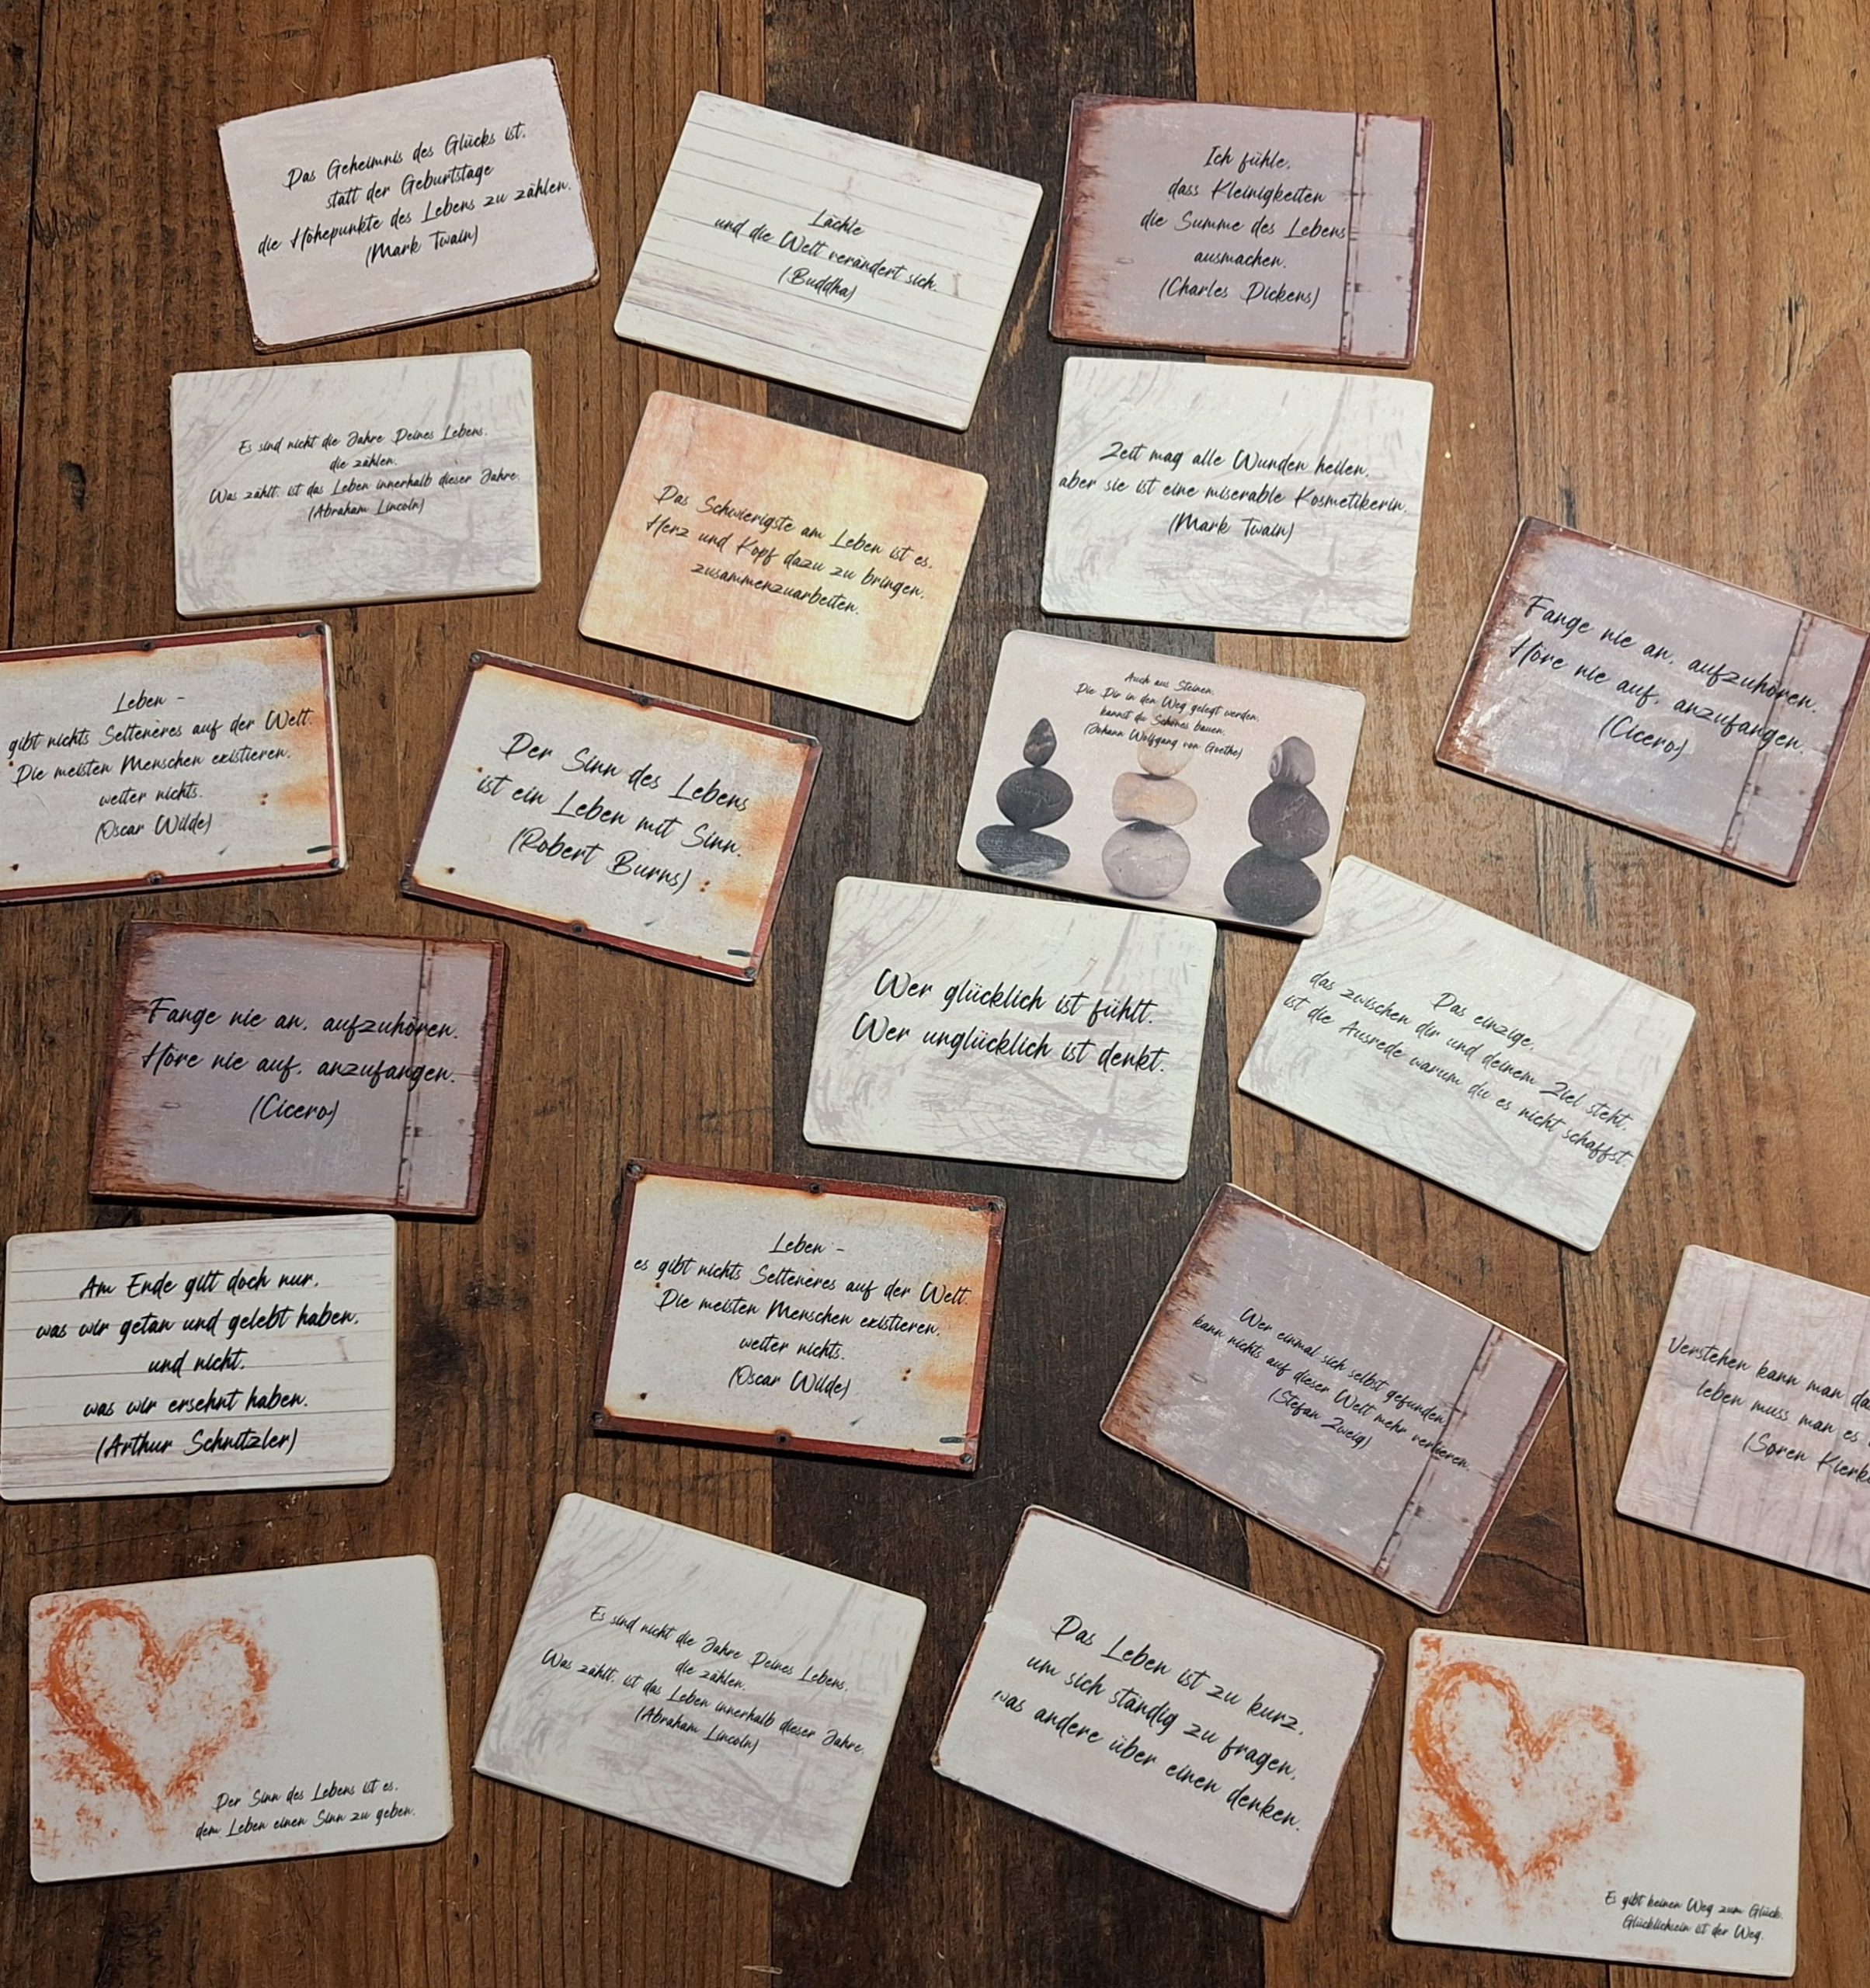 Das Geheimnis des Glücks ist,
statt der Geburtstage
die Höhepunkte des Lebens zu zählen.
(Mark Twain)
Lächle
und die Welt verändert sich.
(Buddha)
Ich fühle,
dass Kleinigkeiten
die Summe des Lebens
ausmachen.
(Charles Dickens)
Es sind nicht die Jahre Deines Lebens,
die zählen.
Was zählt, ist das Leben innerhalb dieser Jahre.
(Abraham Lincoln)
Das Schwierigste am Leben ist es,
Herz und Kopf dazu zu bringen,
zusammenzuarbeiten.
Zeit mag alle Wunden heilen,
aber sie ist eine miserable Kosmetikerin.
(Mark Twain)
Fange nie an, aufzuhören.
Höre nie auf, anzufangen.
(Cicero)
Leben -
gibt nichts Selteneres auf der Welt.
Die meisten Menschen existieren,
weiter nichts.
(Oscar Wilde)
Der Sinn des Lebens
ist ein Leben mit Sinn.
(Robert Burns)
Auch aus Steinen,
Die Dir in den Weg gelegt werden,
kannst du Schönes bauen.
(Johann Wolfgang von Goethe)
Fange nie an, aufzuhören.
Höre nie auf, anzufangen.
(Cicero)
Wer glücklich ist fühlt.
Wer unglücklich ist denkt.
Das einzige,
das zwischen dir und deinem Ziel steht,
ist die Ausrede warum du es nicht schaffst.
Am Ende gilt doch nur,
was wir getan und gelebt haben,
und nicht,
was wir ersehnt haben.
(Arthur Schnitzler)
Leben -
es gibt nichts Selteneres auf der Welt.
Die meisten Menschen existieren,
weiter nichts.
(Oscar Wilde)
Wer einmal sich selbst gefunden,
kann nichts auf dieser Welt mehr verlieren.
(Stefan Zweig)
Verstehen kann man
leben muss man es
(Søren
Der Sinn des Lebens ist es,
dem Leben einen Sinn zu geben.
Es sind nicht die Jahre Deines Lebens,
die zählen.
Was zählt, ist das Leben innerhalb dieser Jahre.
(Abraham Lincoln)
Das Leben ist zu kurz,
um sich ständig zu fragen,
was andere über einen denken.
Es gibt keinen Weg zum Glück.
Glücklichsein ist der Weg.